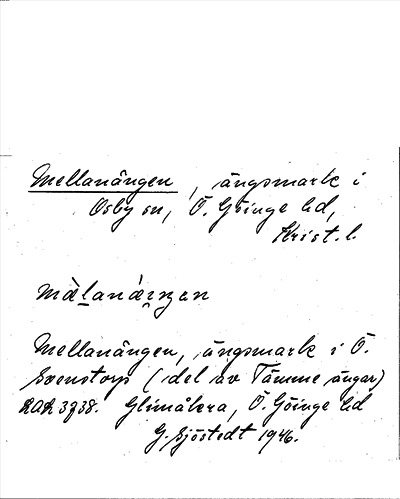 Mellanängen, ängsmark i
Osby sn, Ö. Göinge hd,
Krist. l.
mæ̀lanæ̀ŋen
Mellanängen, ängsmark i Ö.
Svenstorp (del av Tämme ängar)
RAÄ 3738. Glimåkra, Ö. Göinge hd
G. Sjöstedt 1946.